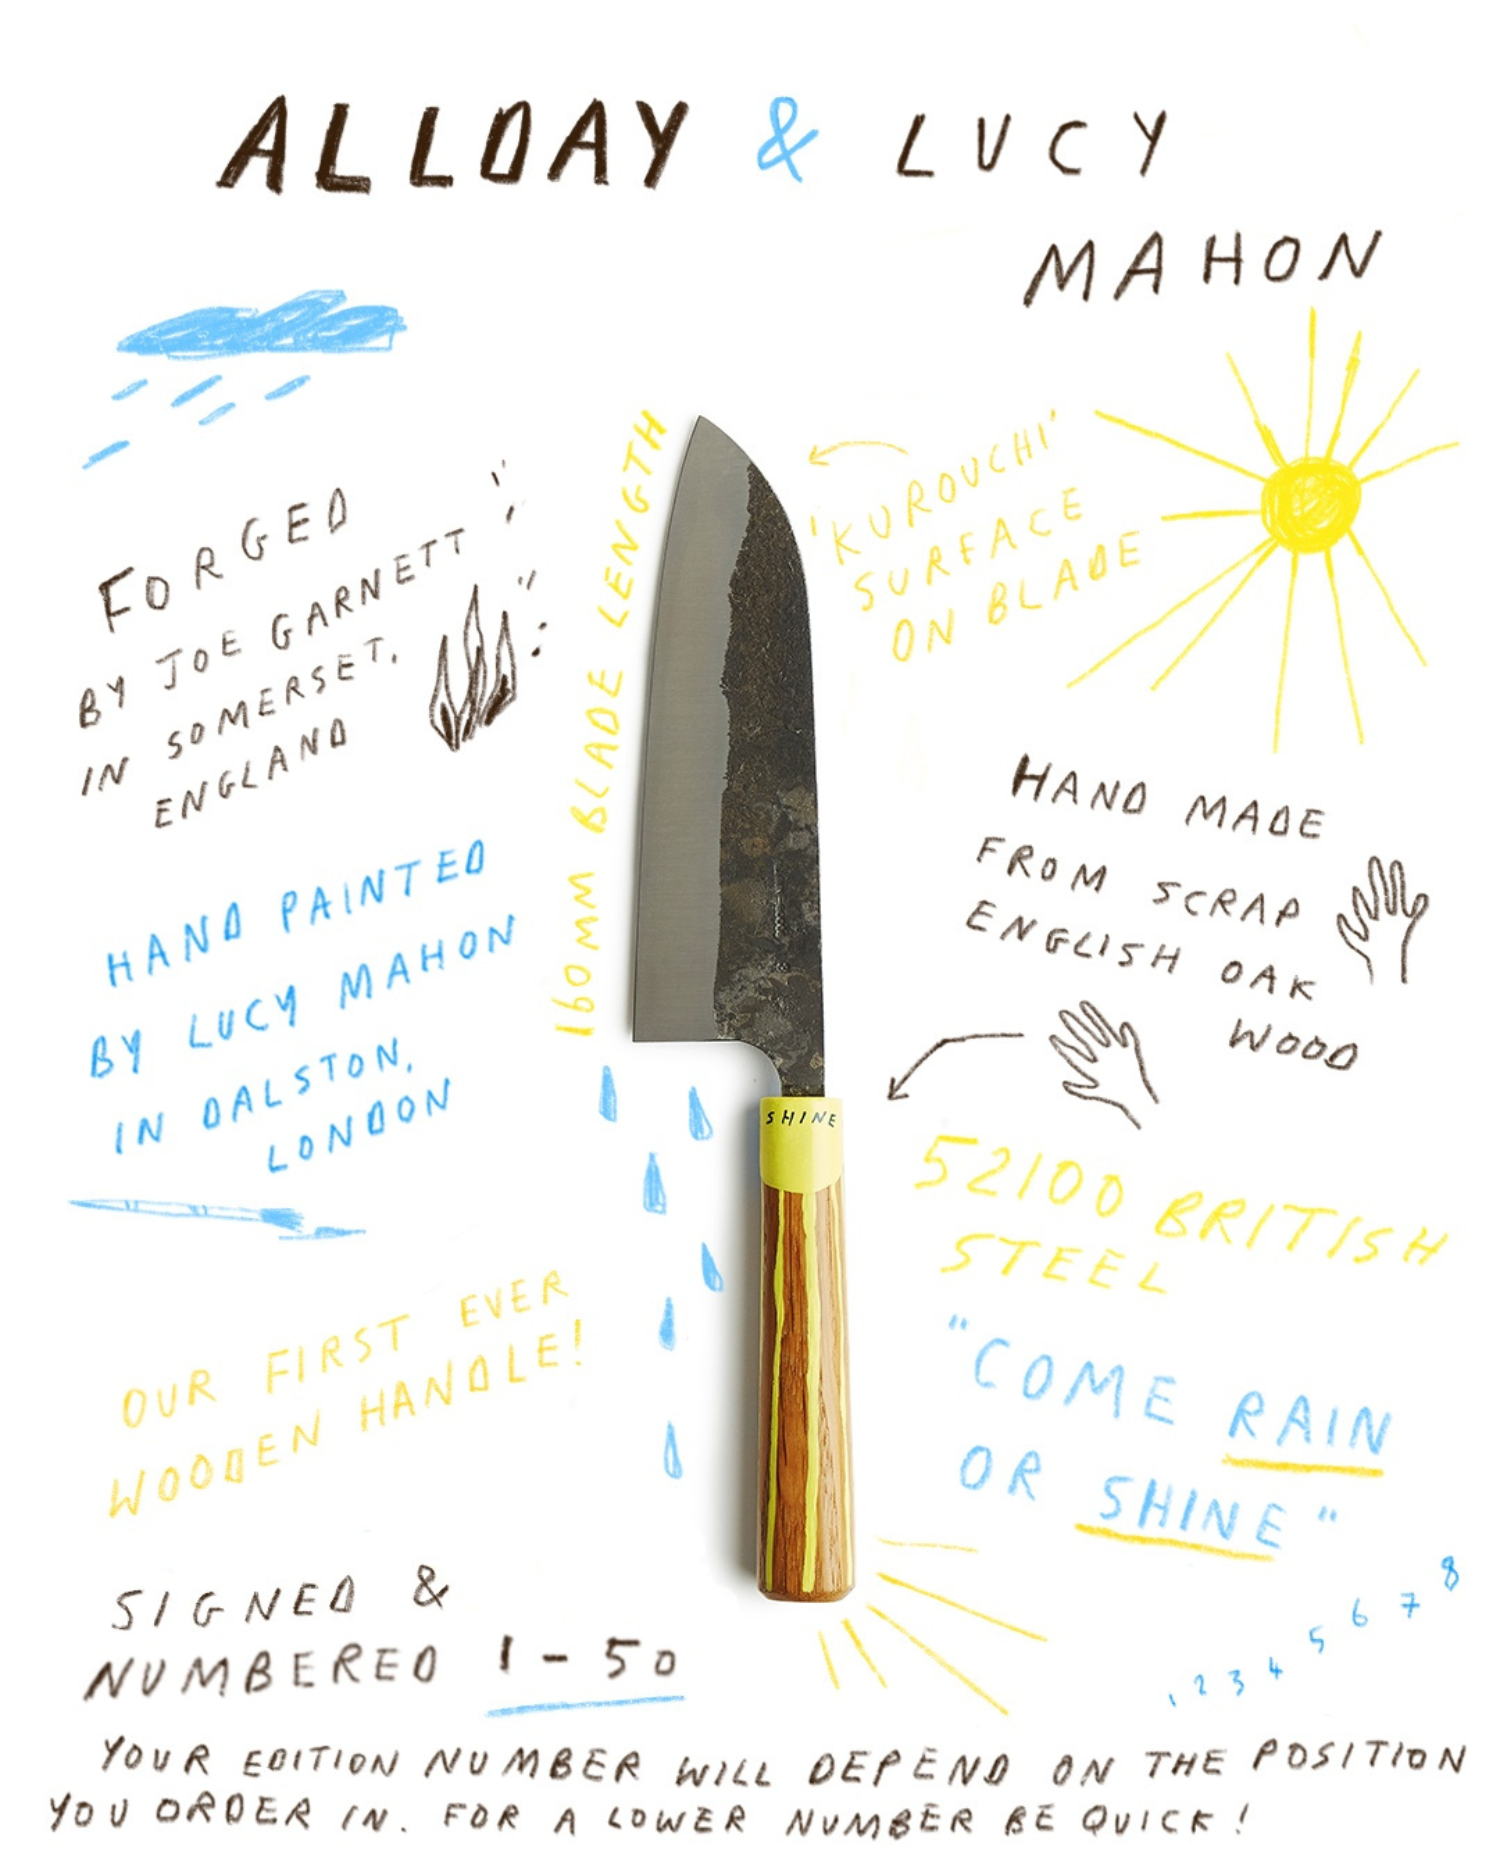 ALLDAY & LUCY
MAHON
160MM BLADE LENGTH
'KUROUCHI'
SURFACE
ON BLADE
FORGED
BY JOE GARNETT
IN SOMERSET,
ENGLAND
HAND MADE
FROM SCRAP
ENGLISH OAK
WOOD
HAND PAINTED
BY LUCY MAHON
IN DALSTON,
LONDON
SHINE
52100 BRITISH
STEEL
OUR FIRST EVER
WOODEN HANDLE!
"COME RAIN
OR SHINE"
SIGNED &
NUMBERED 1-50
1 2 3 4 5 6 7 8
YOUR EDITION NUMBER WILL DEPEND ON THE POSITION
YOU ORDER IN. FOR A LOWER NUMBER BE QUICK!